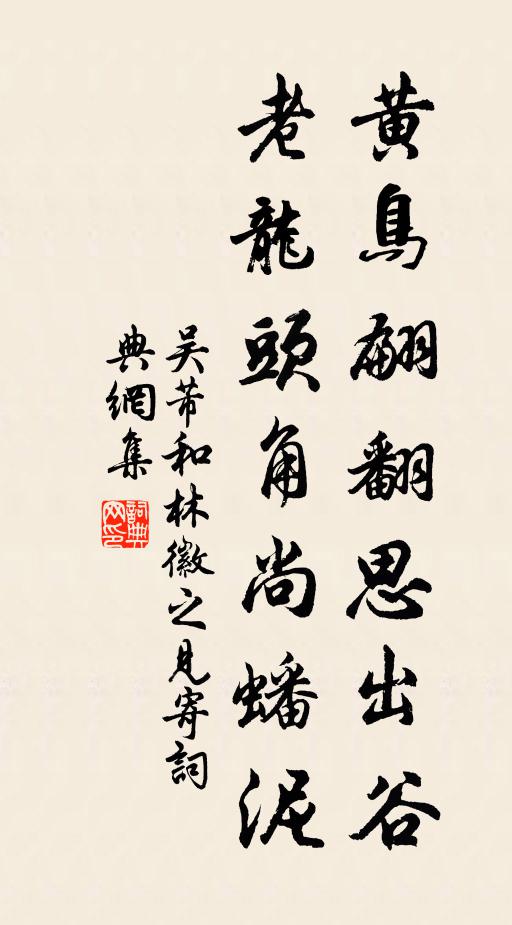 黄鳥翩翻思出谷
老龍頭角尚蟠泥
吴芾和林徽之見寄詞
典網集
詞典
网印